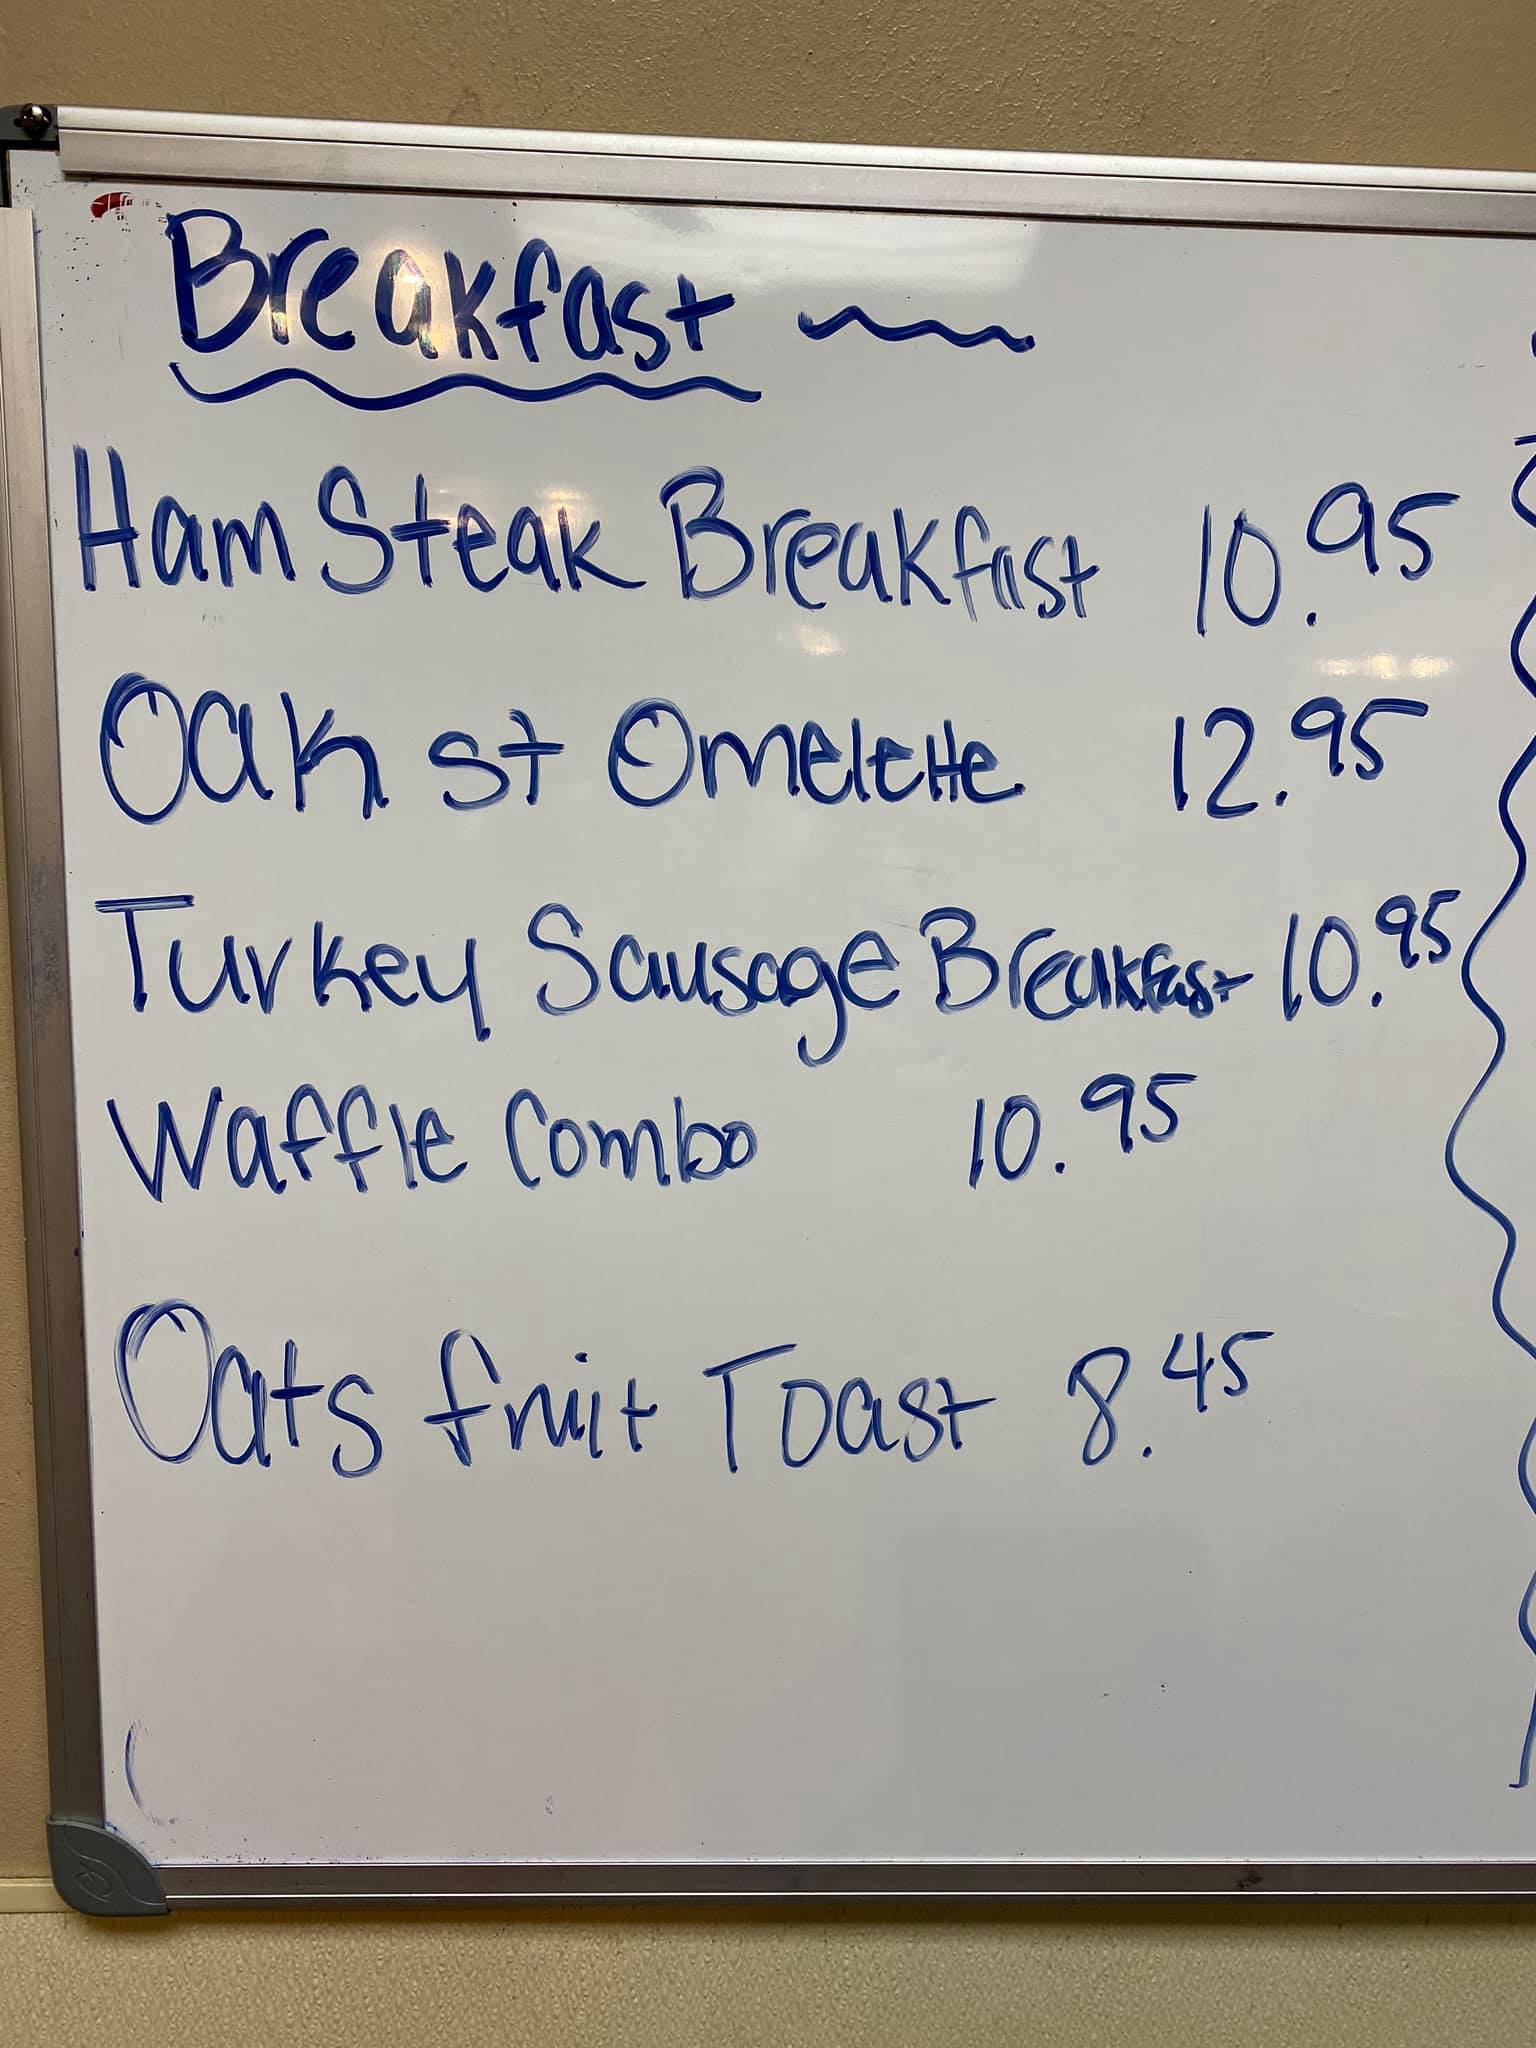 Breakfast
Ham Steak Breakfast 10.95
Oak St Omelette 12.95
Turkey Sausage Breakfast 10.95
Waffle Combo 10.95
Oats fruit Toast 8.45